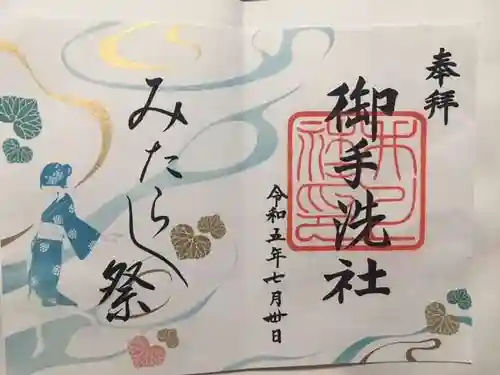 奉拝
御手洗社
令和五年七月卅日
みたらし祭